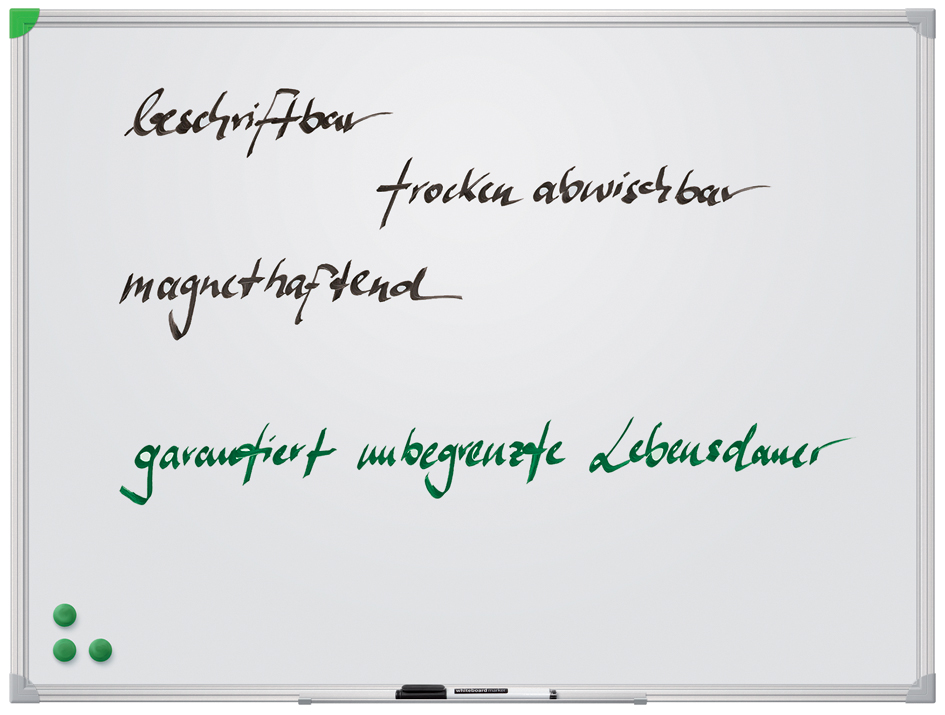 beschriftbar
trocken abwischbar
magnethaftend
garantiert unbegrenzte Lebensdauer
whiteboard marker